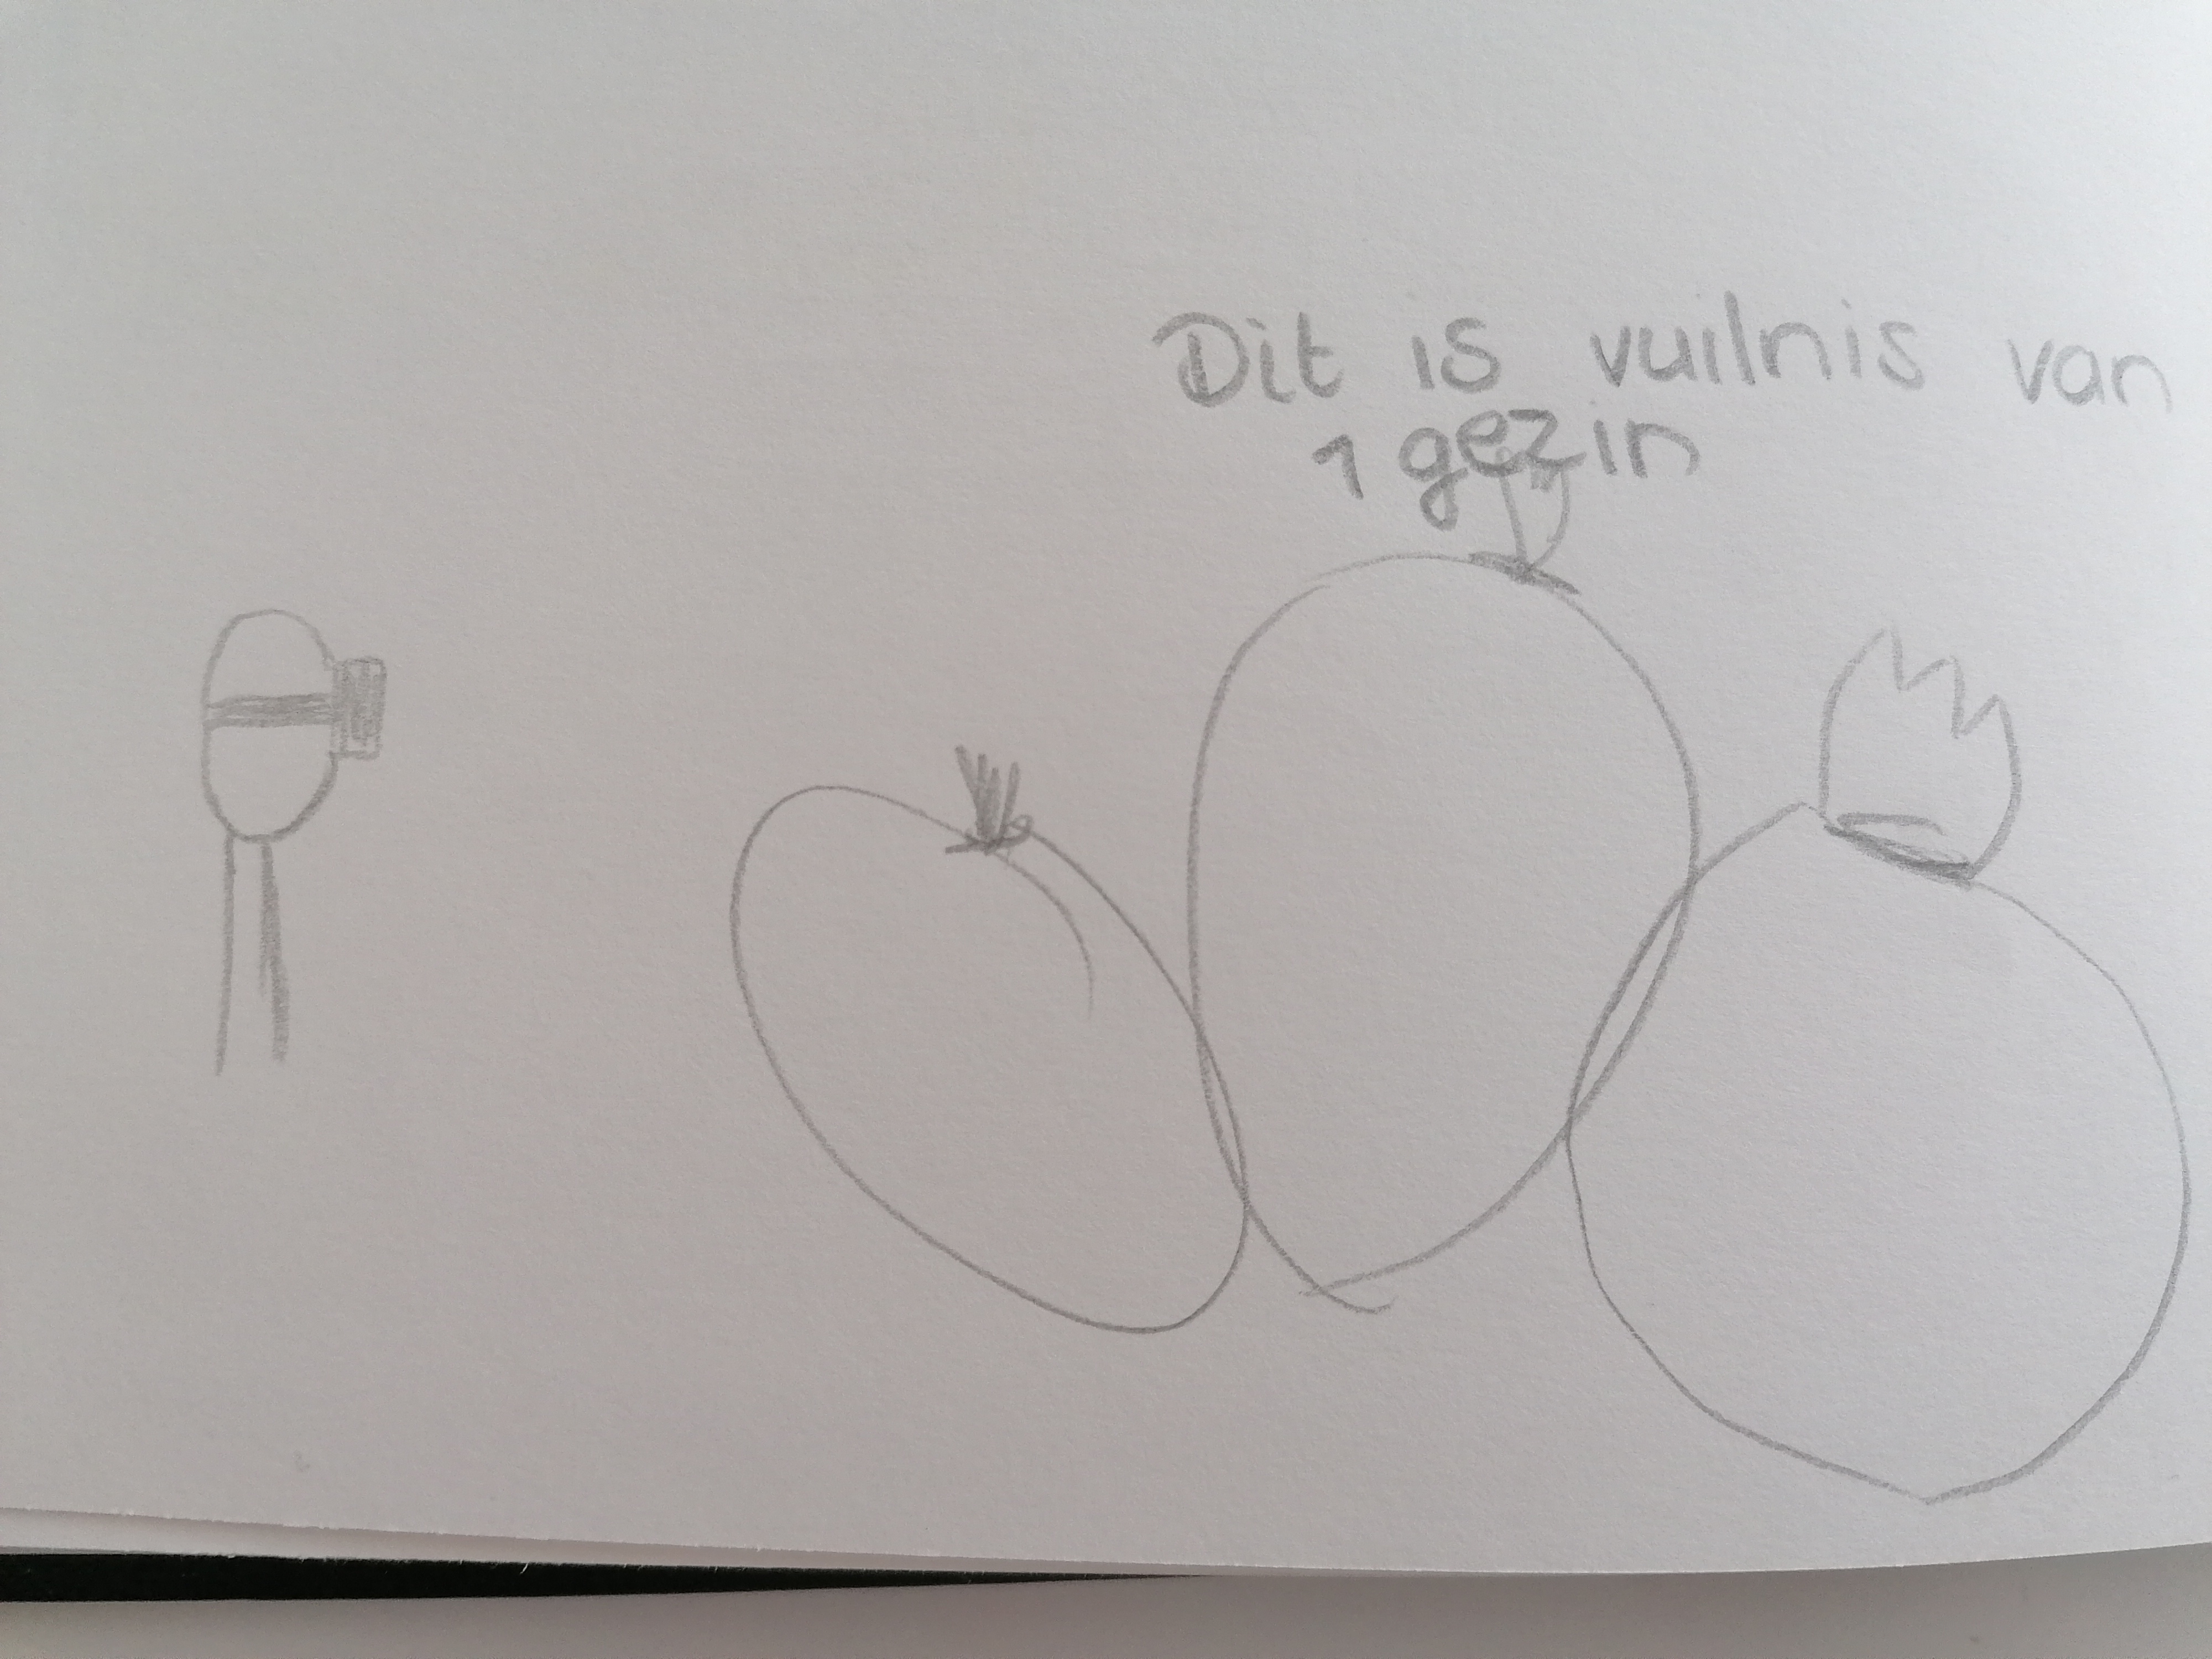 Dit is vuilnis van
1 gezin